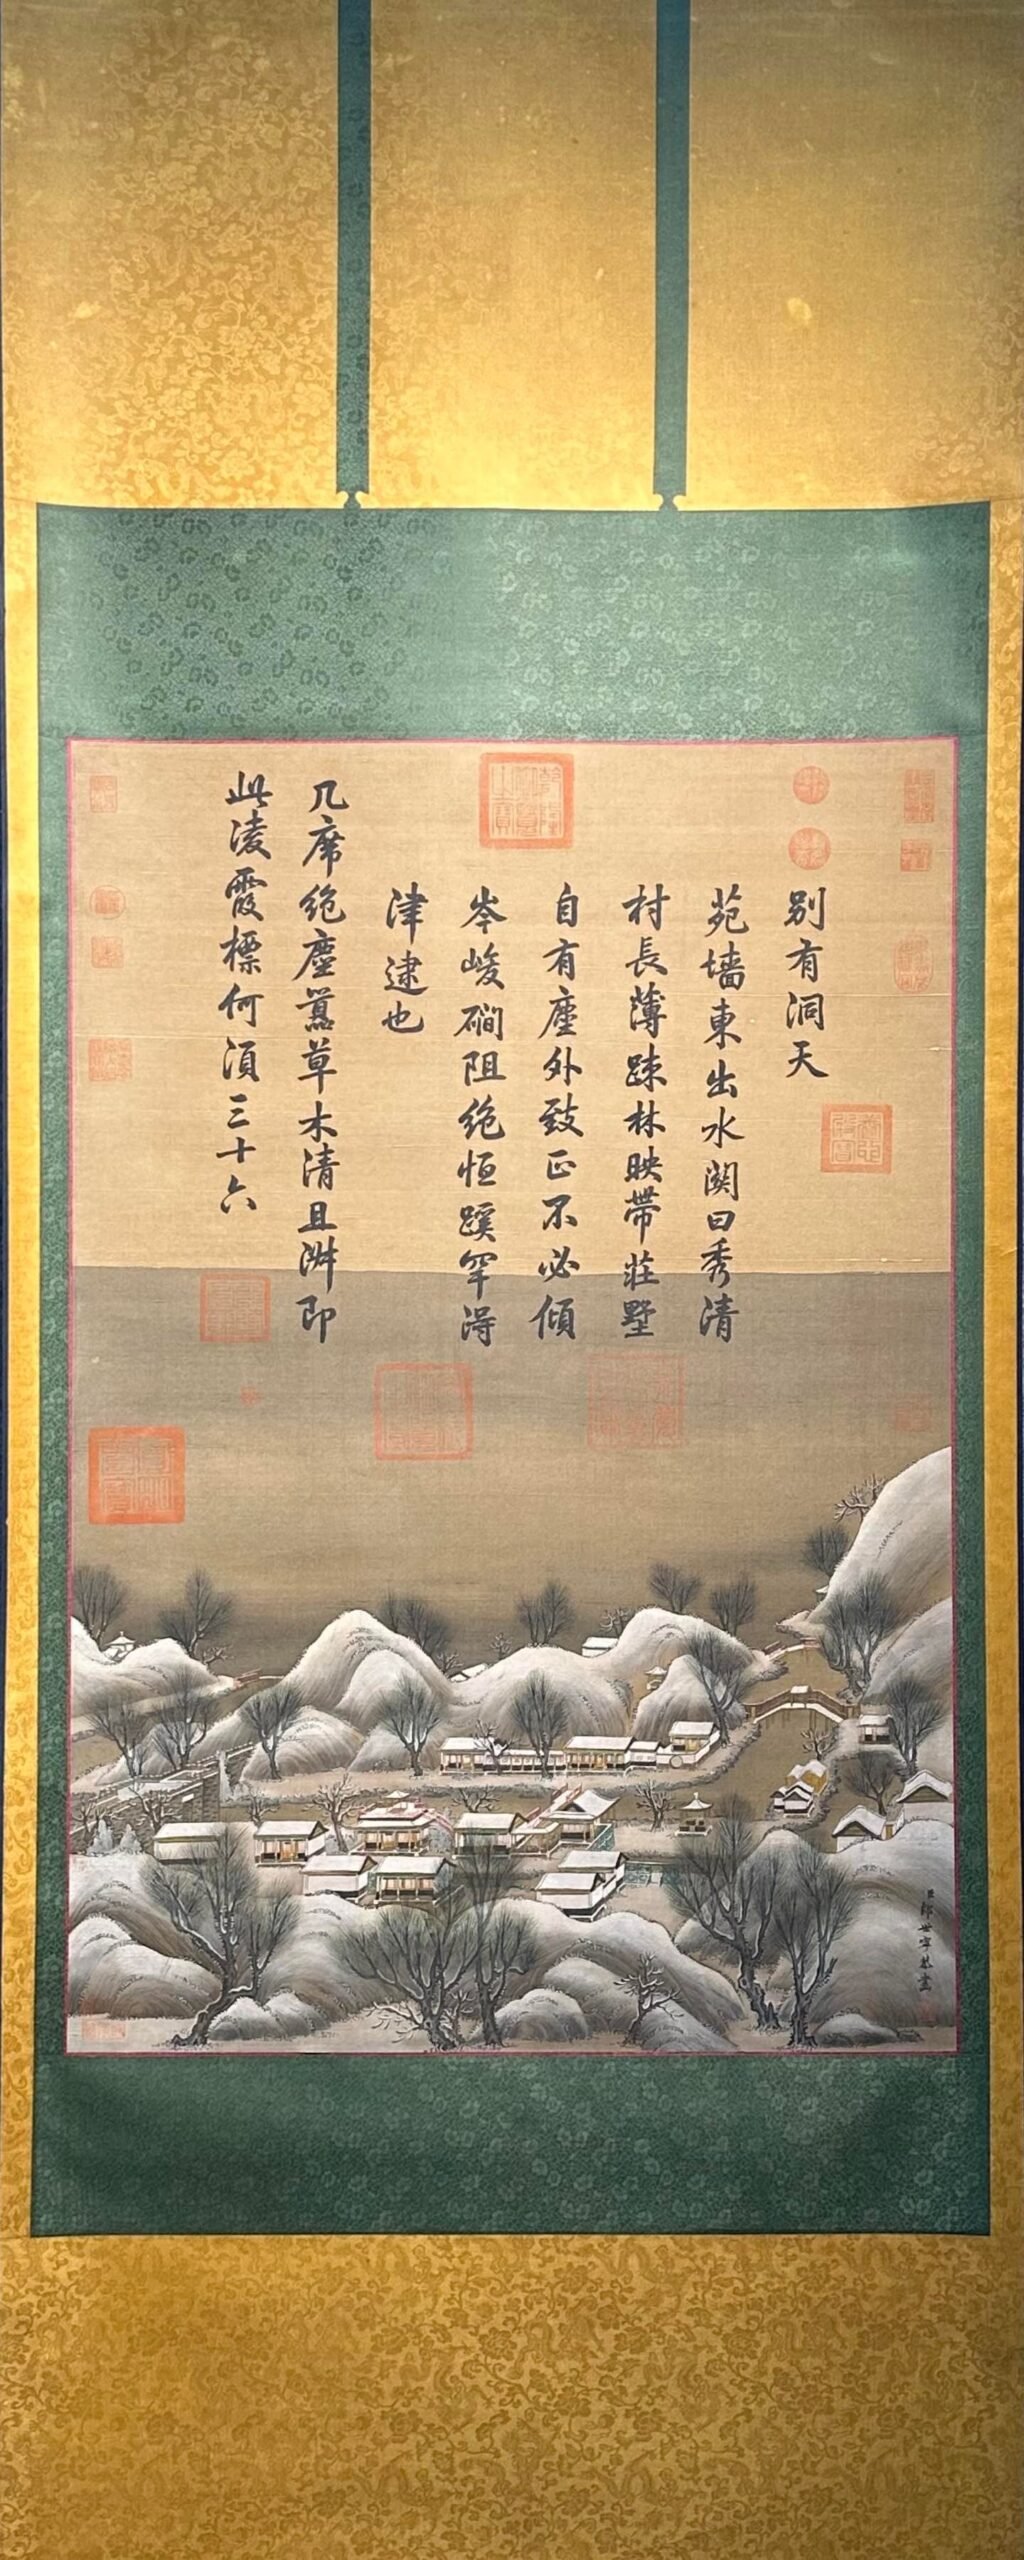 别有洞天
苑墻東出水関曰秀清
村長薄疎林映帶莊墅
自有塵外致正不必傾
岑峻磵阻絶恒蹊罕得
津逮也
几席絶塵囂草木清且淑即
此凌霞標何須三十六
乾隆御覽之寶
臣郎世寧恭畫